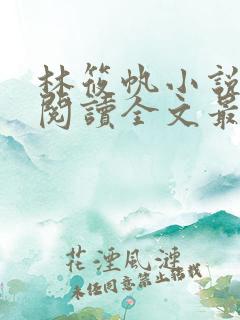 林筱帆小說
閱讀全文最
花湮風連
未经同意禁止转载